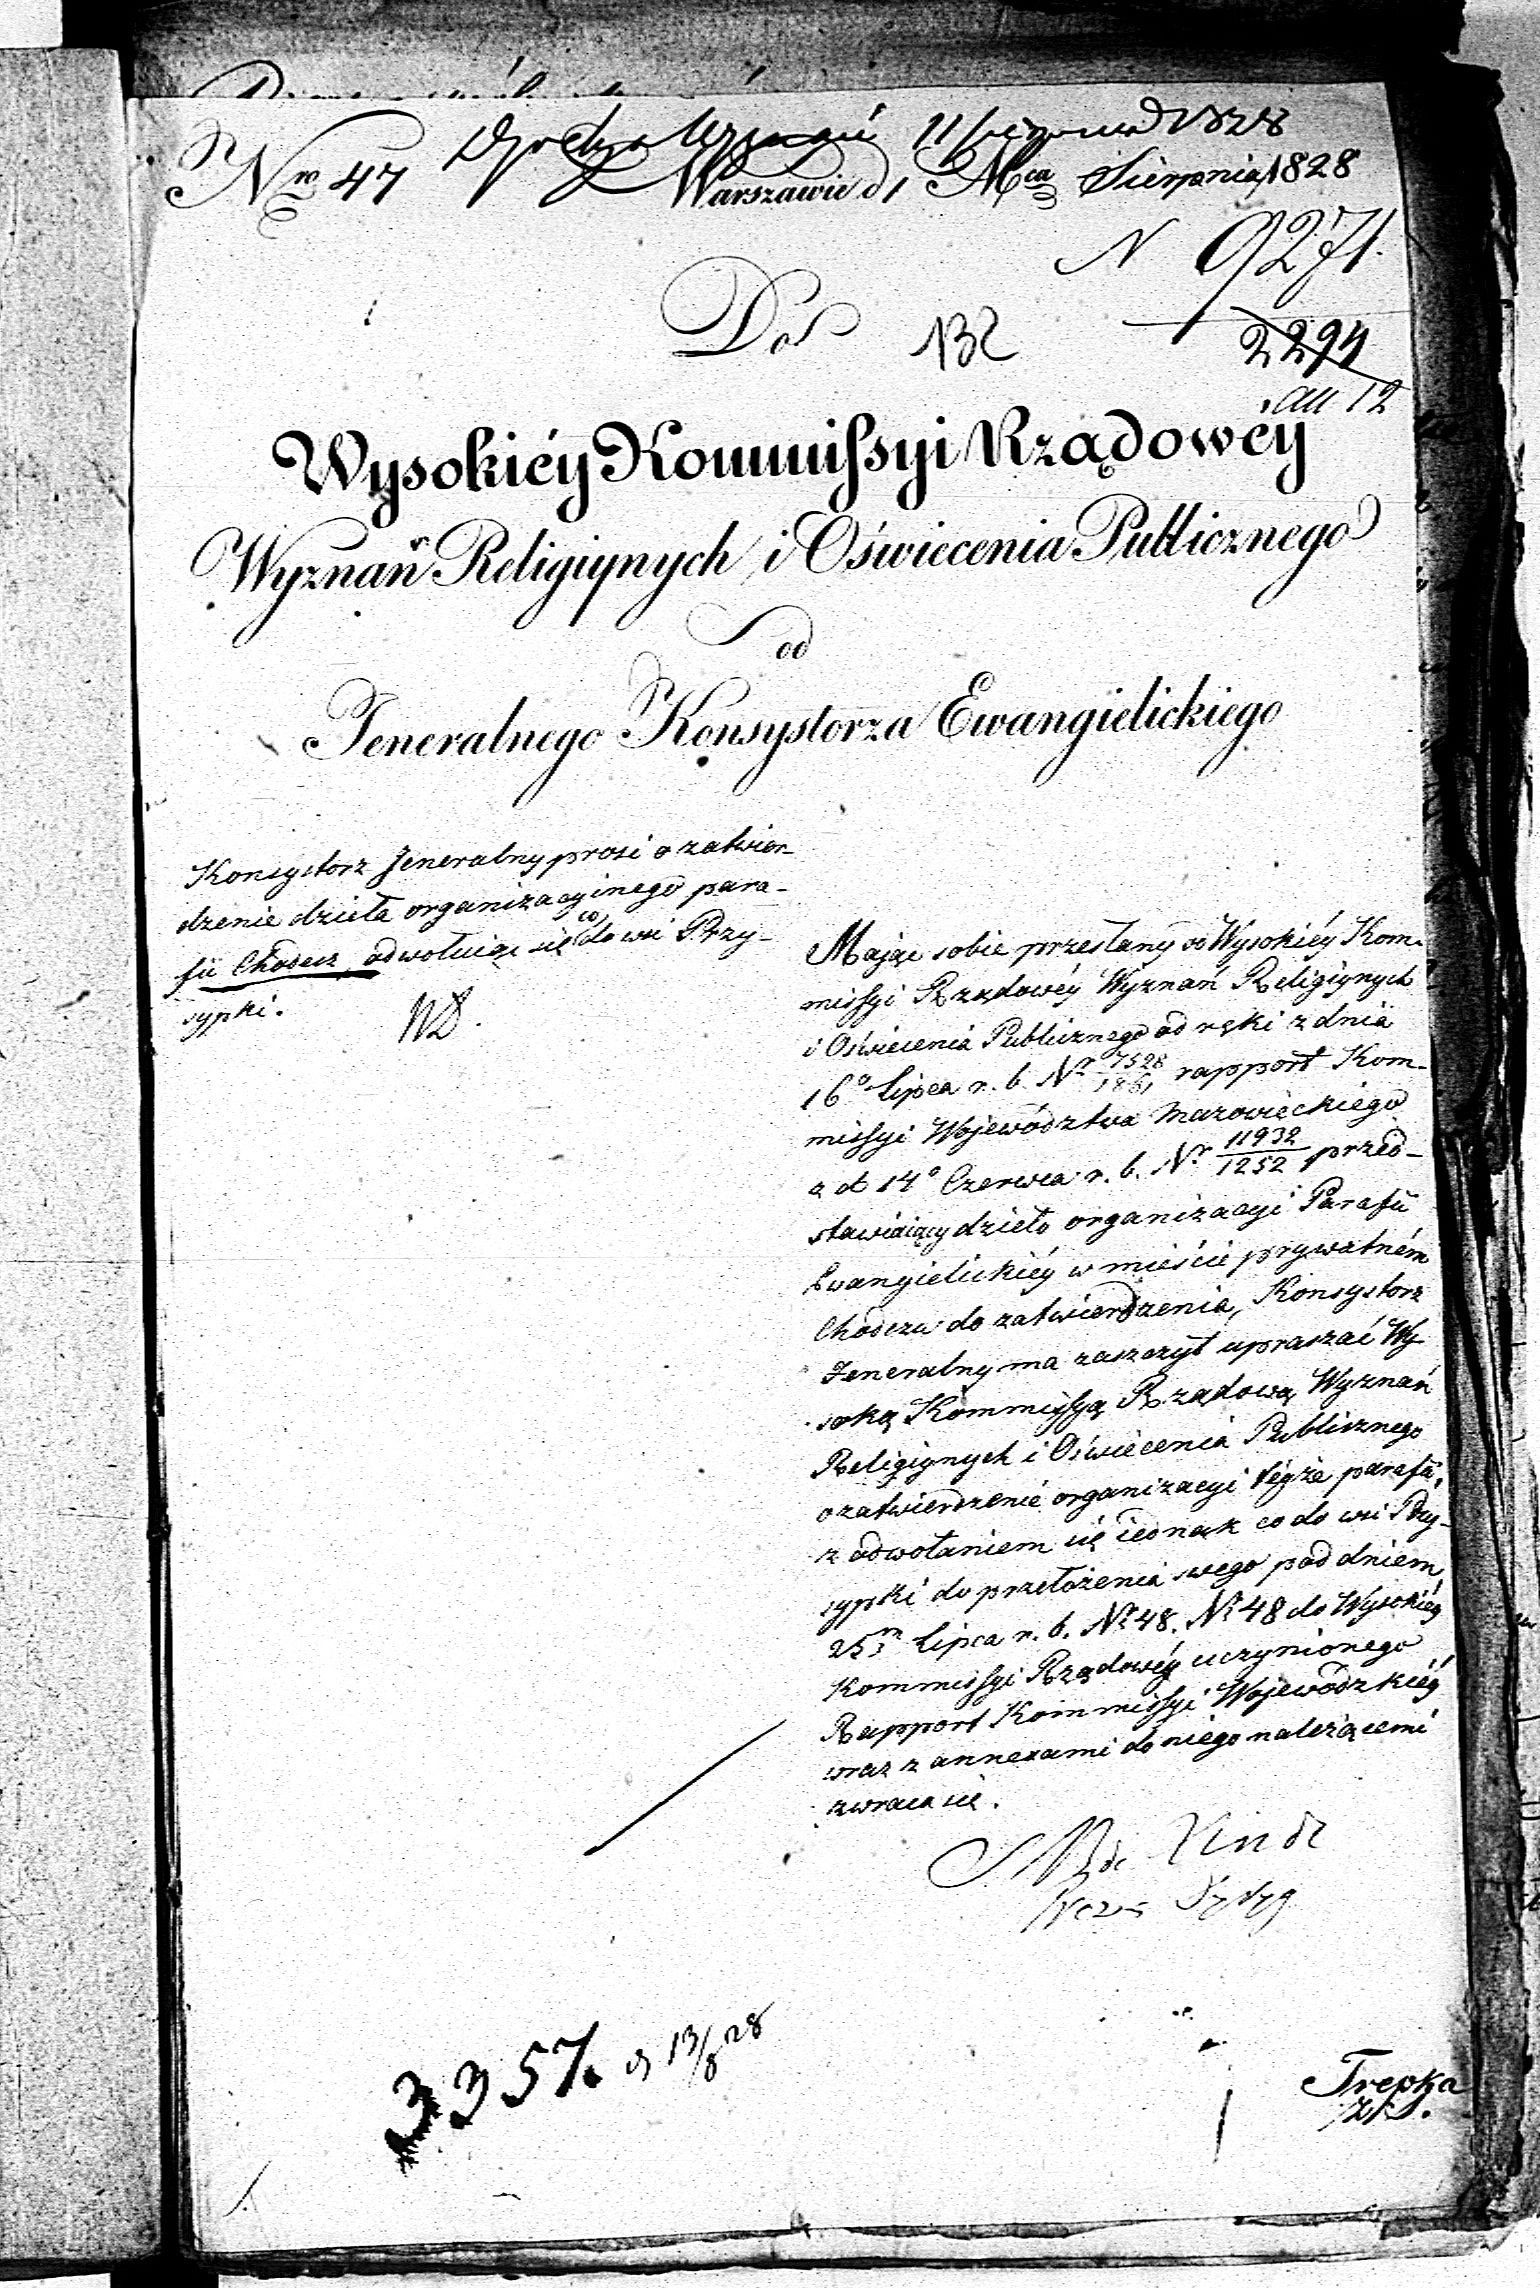 11 sierpnia 1828
Nro 47 Warszawie d 1 Mca Sierpnia 1828
N 9271.
Do 132
2294
all 12
Wysokiéy Kommissyi Rządowéy
Wyznań Religiynych i Oświecenia Publicznego
od
Jeneralnego Konsystorza Ewangielickiego
Konsystorz Jeneralny prosi o zatwier-
dzenie dzieła organizacyinego para-
fii Chodecz, odwołuiąc się co do wsi Przy-
sypki.
Maiąc sobie przesłany od Wysokiéy Kom-
missyi Rządowéy Wyznań Religiynych
i Oświecenia Publicznego od ręki z dnia
16o Lipca r. b. Nr 7528/1861 rapport Kom-
missyi Województwa Mazowieckiego
a d 14o Czerwca r. b. Nr 11932/1252 przed-
stawiaiący dzieło organizacyi Parafii
Ewangielickiéy w mieście prywatném
Chodczu do zatwierdzenia, Konsystorz
Jeneralny ma zaszczyt upraszać Wy-
soką Kommissyą Rządową Wyznań
Religiynych i Oświecenia Publicznego
o zatwierdzenie organizacyi téyże parafii,
z odwołaniem się iednak co do wsi Przy-
sypki do przełożenia swego pod dniem
25m Lipca r. b. Nr 48. Nr 48 do Wysokiéy
Kommissyi Rządowéy uczynionego
Rapport Kommissyi Wojewódzkiéy
wraz z annexami do niego należącemi
zwraca się.
3357. d 13/8 28
Trepka